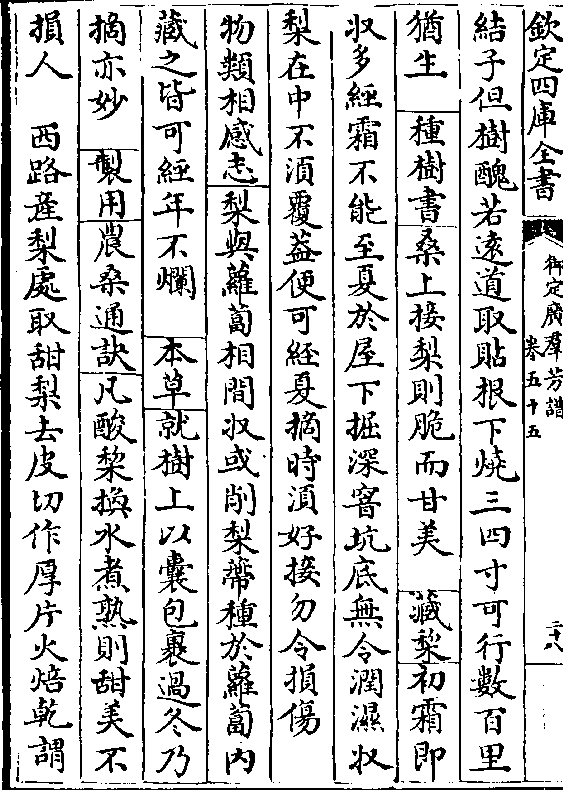 欽定四庫全書
御定廣羣芳譜
卷五十五
二十八
結子但樹醜若遠道取貼根下燒三四寸可行數百里
猶生　種樹書桑上接梨則脆而甘美　藏梨初霜即
収多經霜不能至夏於屋下掘深窨坑底無令潤濕収
梨在中不湏覆葢便可經夏摘時湏好接勿令損傷
物類相感志梨與蘿蔔相間収或削梨蔕種於蘿蔔内
藏之皆可經年不爛　本草就樹上以囊包裹過冬乃
摘亦妙　製用農桑通訣凡酸棃換水煮熟則甜美不
損人　西路産梨處取甜梨去皮切作厚片火焙乾謂